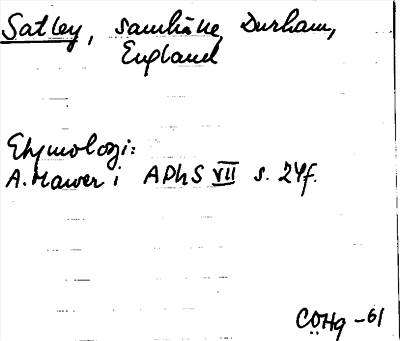 Satley, samhälle, Durham,
England
Etymologi:
A. Mawer i APhS VII s. 24f.
CÖHg -61